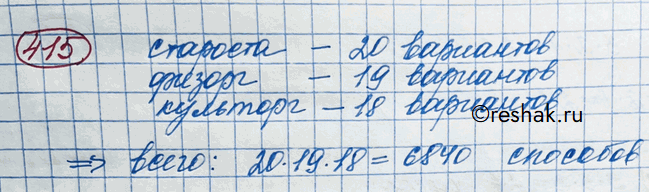 415 староста – 20 вариантов
физорг – 19 вариантов
культорг – 18 вариантов
©reshak.ru
⇒ всего: 20·19·18 = 6840 способов